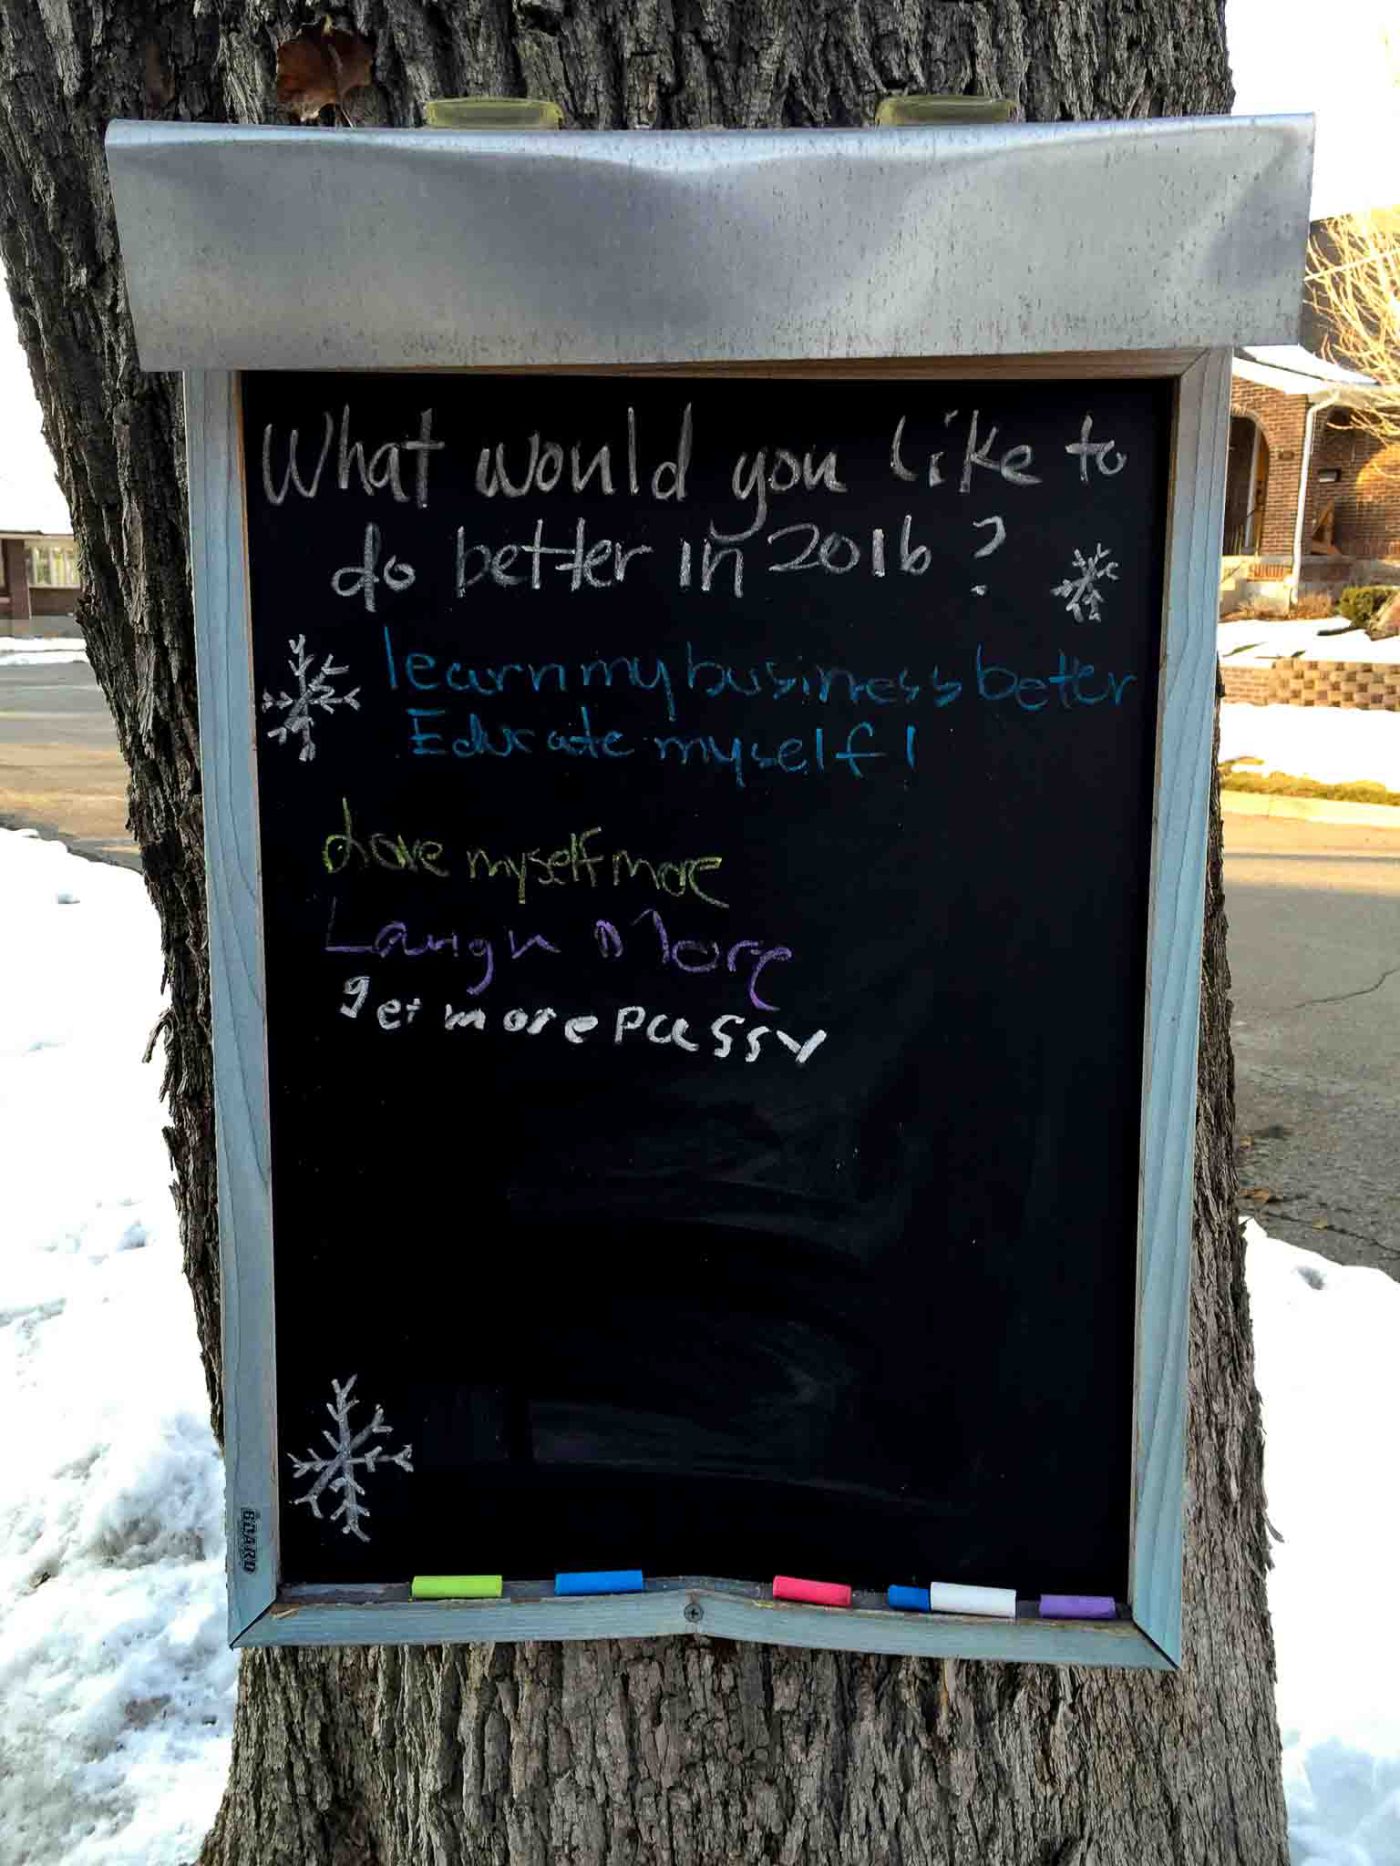 What would you like to
do better in 2016?
learn my business better
Educate myself!
Love myself more
Laugh More
get more pussy
BOARD